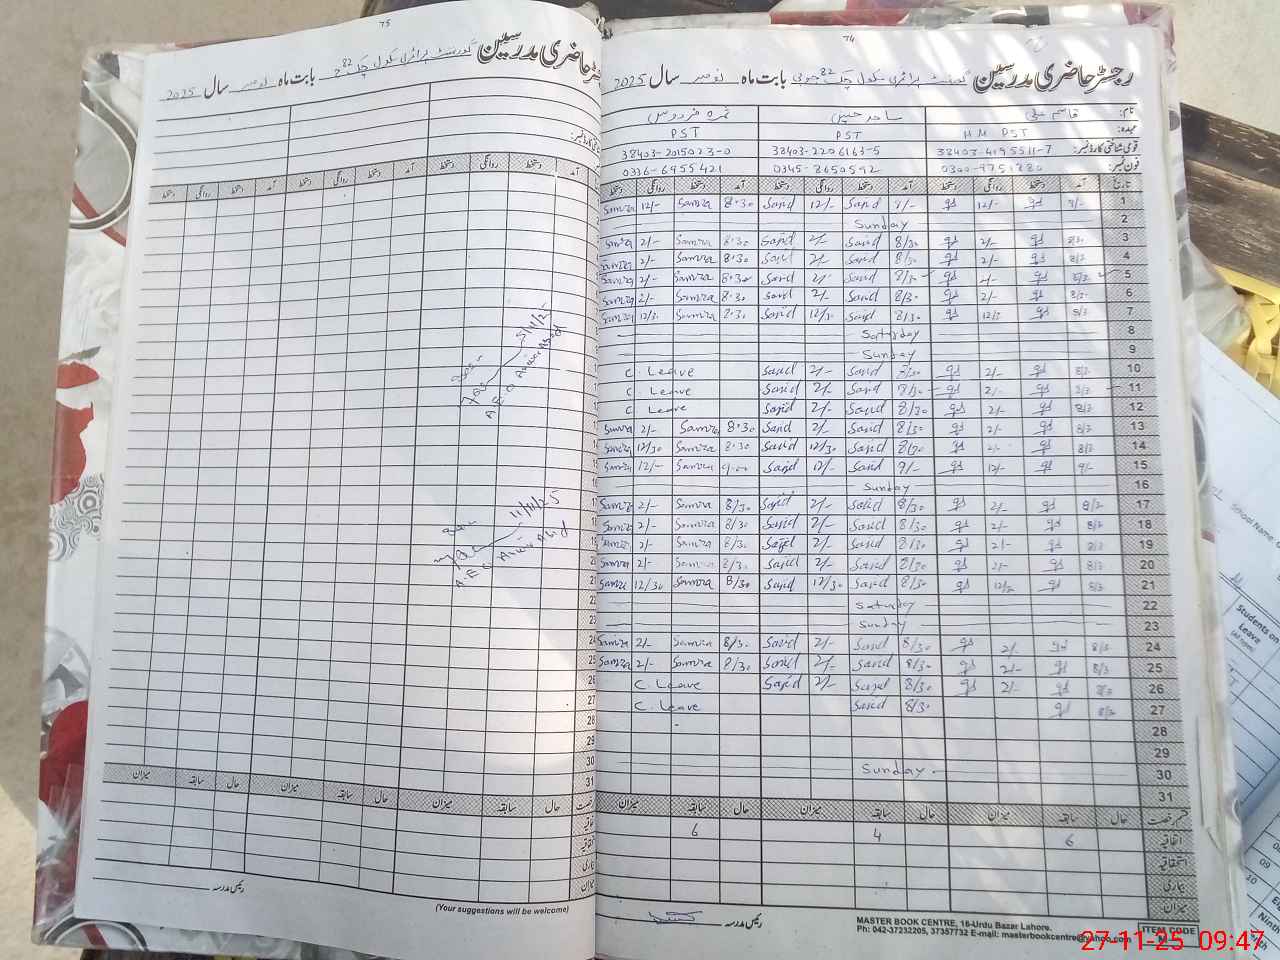 75
رجسٹر حاضری مدرسین گورنمنٹ پرائمری سکول چک 82 بابت ماہ نومبر سال 2025
دستخط روانگی دستخط آمد دستخط روانگی دستخط آمد دستخط روانگی دستخط آمد
5/11/25
A.E.O
11/11/25
A.E.O
میزان سابقہ حال میزان سابقہ حال میزان سابقہ حال
رئیس مدرسہ
(Your suggestions will be welcome)
74
رجسٹر حاضری مدرسین گورنمنٹ پرائمری سکول چک 82 جنوبی بابت ماہ نومبر سال 2025
نام: قاسم علی ساجد حسین ثمرہ فردوس
عہدہ: HM PST PST PST
قومی شناختی کارڈ نمبر: 38403-4195511-7 38403-2206163-5 38403-2015023-0
فون نمبر: 0345-8650592 0336-6955421
تاریخ آمد دستخط روانگی دستخط آمد دستخط روانگی دستخط آمد دستخط روانگی دستخط
Samra 12/- Samra 8:30 Sajid 12/- Sajid 8/- 12/- 8/- 1
Sunday 2
Samra 2/- Samra 8:30 Sajid 2/- Sajid 8/30 2/- 8/30 3
Samra 2/- Samra 8:30 Sajid 2/- Sajid 8/30 2/- 8/30 4
Samra 2/- Samra 8:30 Sajid 2/- Sajid 8/30 2/- 8/30 5
Samra 2/- Samra 8:30 Sajid 2/- Sajid 8/30 2/- 8/30 6
Samra 12/30 Samra 8:30 Sajid 12/30 Sajid 8/30 12/30 8/30 7
Saturday 8
Sunday 9
C. Leave Sajid 2/- Sajid 8/30 2/- 8/30 10
C Leave Sajid 2/- Sajid 8/30 2/- 8/30 11
C Leave Sajid 2/- Sajid 8/30 2/- 8/30 12
Samra 2/- Samra 8:30 Sajid 2/- Sajid 8/30 2/- 8/30 13
Samra 12/30 Samra 8:30 Sajid 12/30 Sajid 8/30 2/- 8/30 14
Samra 12/- Samra 9:00 Sajid 12/- Sajid 9/- 12/- 9/- 15
Sunday 16
Samra 2/- Samra 8/30 Sajid 2/- Sajid 8/30 2/- 8/30 17
Samra 2/- Samra 8/30 Sajid 2/- Sajid 8/30 2/- 8/30 18
Samra 2/- Samra 8/30 Sajid 2/- Sajid 8/30 2/- 8/30 19
Samra 2/- Samra 8/30 Sajid 2/- Sajid 8/30 2/- 8/30 20
Samra 12/30 Samra 8/30 Sajid 12/30 Sajid 8/30 12/30 8/30 21
Saturday 22
Sunday 23
Samra 2/- Samra 8/30 Sajid 2/- Sajid 8/30 2/- 8/30 24
Samra 2/- Samra 8/30 Sajid 2/- Sajid 8/30 2/- 8/30 25
C. Leave Sajid 2/- Sajid 8/30 2/- 8/30 26
C. Leave Sajid 8/30 8/30 27
28
29
Sunday 30
31
قسم رخصت حال سابقہ میزان حال سابقہ میزان حال سابقہ میزان
اتفاقیہ 6 4 6
استحقاقیہ
بیماری
میزان
رئیس مدرسہ
MASTER BOOK CENTRE, 16-Urdu Bazar Lahore.
Ph: 042-37232205, 37357732 E-mail: masterbookcentre@yahoo.com
ITEM CODE
School Name
Students on
Leave
09
10
Ninth
27-11-25 09:47